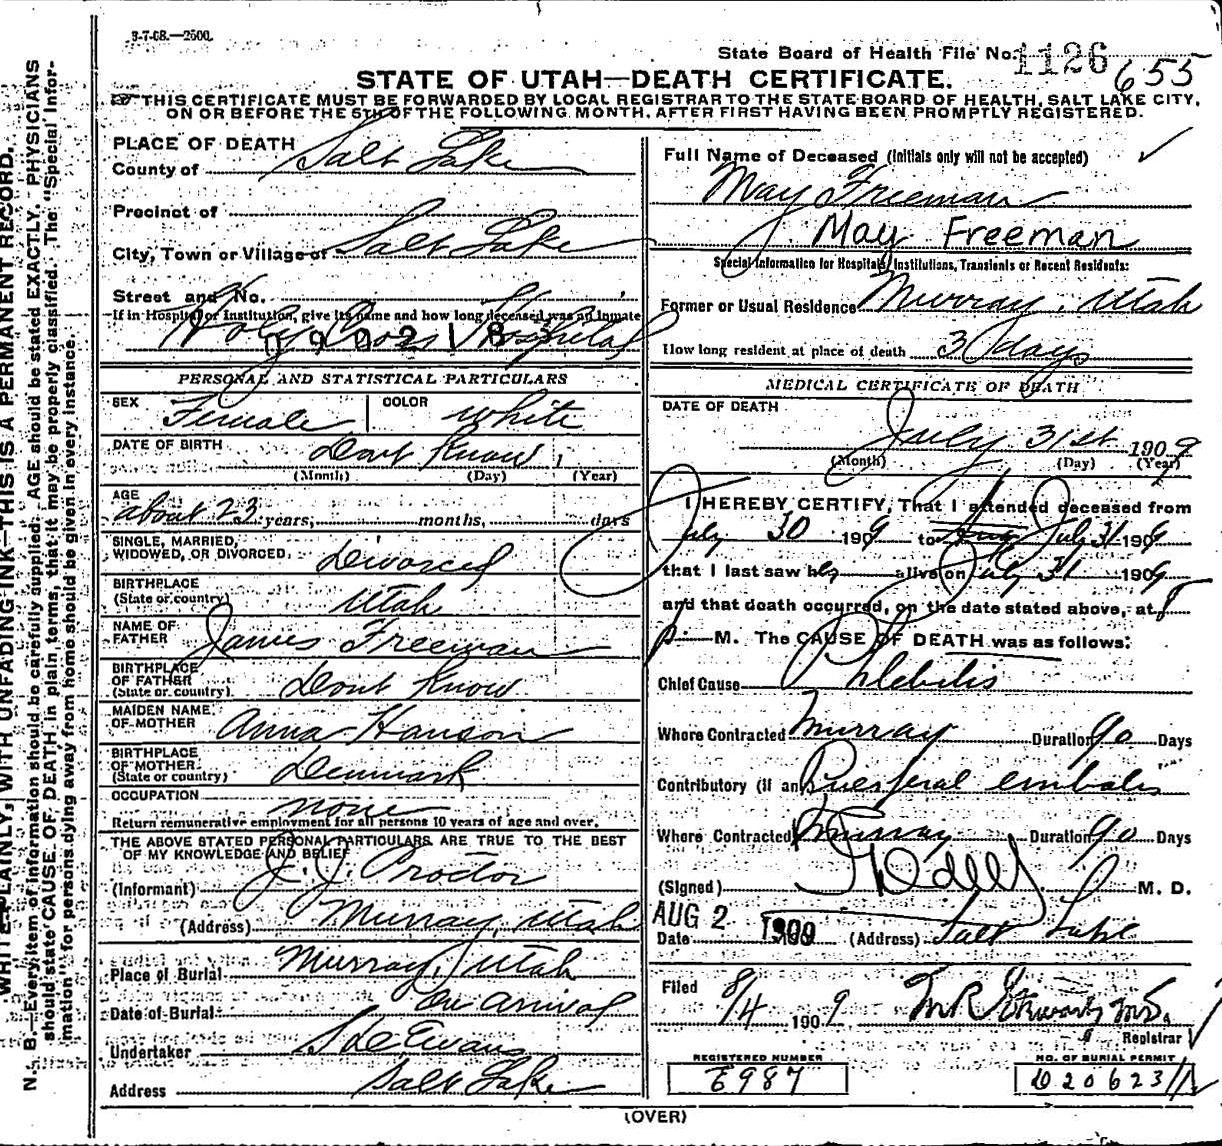 3-7-08.—2500.
State Board of Health File No. 1126 655
STATE OF UTAH—DEATH CERTIFICATE.
THIS CERTIFICATE MUST BE FORWARDED BY LOCAL REGISTRAR TO THE STATE BOARD OF HEALTH, SALT LAKE CITY,
ON OR BEFORE THE 5TH OF THE FOLLOWING MONTH, AFTER FIRST HAVING BEEN PROMPTLY REGISTERED.
WRITE PLAINLY, WITH UNFADING INK—THIS IS A PERMANENT RECORD.
N. B.—Every item of information should be carefully supplied. AGE should be stated EXACTLY. PHYSICIANS
should state CAUSE OF DEATH in plain terms, that it may be properly classified. The "Special Infor-
mation" for persons dying away from home should be given in every instance.
PLACE OF DEATH
County of Salt Lake
Precinct of
City, Town or Village of Salt Lake
Street and No.
If in Hospital or Institution, give its name and how long deceased was an Inmate
Holy Cross Hospital
0 9 0 2 1 8
PERSONAL AND STATISTICAL PARTICULARS
SEX Female COLOR White
DATE OF BIRTH Dont Know
(Month) (Day) (Year)
AGE
about 23 years, months, days
SINGLE, MARRIED,
WIDOWED, OR DIVORCED. Divorced
BIRTHPLACE
(State or country) Utah
NAME OF
FATHER James Freeman
BIRTHPLACE
OF FATHER
(State or country) Dont Know
MAIDEN NAME
OF MOTHER Anna Hanson
BIRTHPLACE
OF MOTHER
(State or country) Denmark
OCCUPATION none
Return remunerative employment for all persons 10 years of age and over.
THE ABOVE STATED PERSONAL PARTICULARS ARE TRUE TO THE BEST
OF MY KNOWLEDGE AND BELIEF
(Informant) J. J. Proctor
(Address) Murray, Utah
Place of Burial Murray, Utah
Date of Burial On arrival
Undertaker S D Evans
Address Salt Lake
Full Name of Deceased (Initials only will not be accepted)
May Freeman
May Freeman
Special Information for Hospitals, Institutions, Transients or Recent Residents:
Former or Usual Residence Murray, Utah
How long resident at place of death 3 days
MEDICAL CERTIFICATE OF DEATH
DATE OF DEATH
July 31st 1909
(Month) (Day) (Year)
I HEREBY CERTIFY, That I attended deceased from
July 30 1909 to July 31 1909
that I last saw her alive on July 31 1909
and that death occurred, on the date stated above, at 8
p. M. The CAUSE OF DEATH was as follows:
Chief Cause Phlebitis
Where Contracted Murray Duration 90 Days
Contributory (if any) Puerperal embolis
Where Contracted Murray Duration 90 Days
(Signed) M. D.
AUG 2 1909
Date (Address) Salt Lake
Filed 8/4 1909 M R Stewart M.D.
Registrar
REGISTERED NUMBER
E987
NO. OF BURIAL PERMIT
D20623
(OVER)